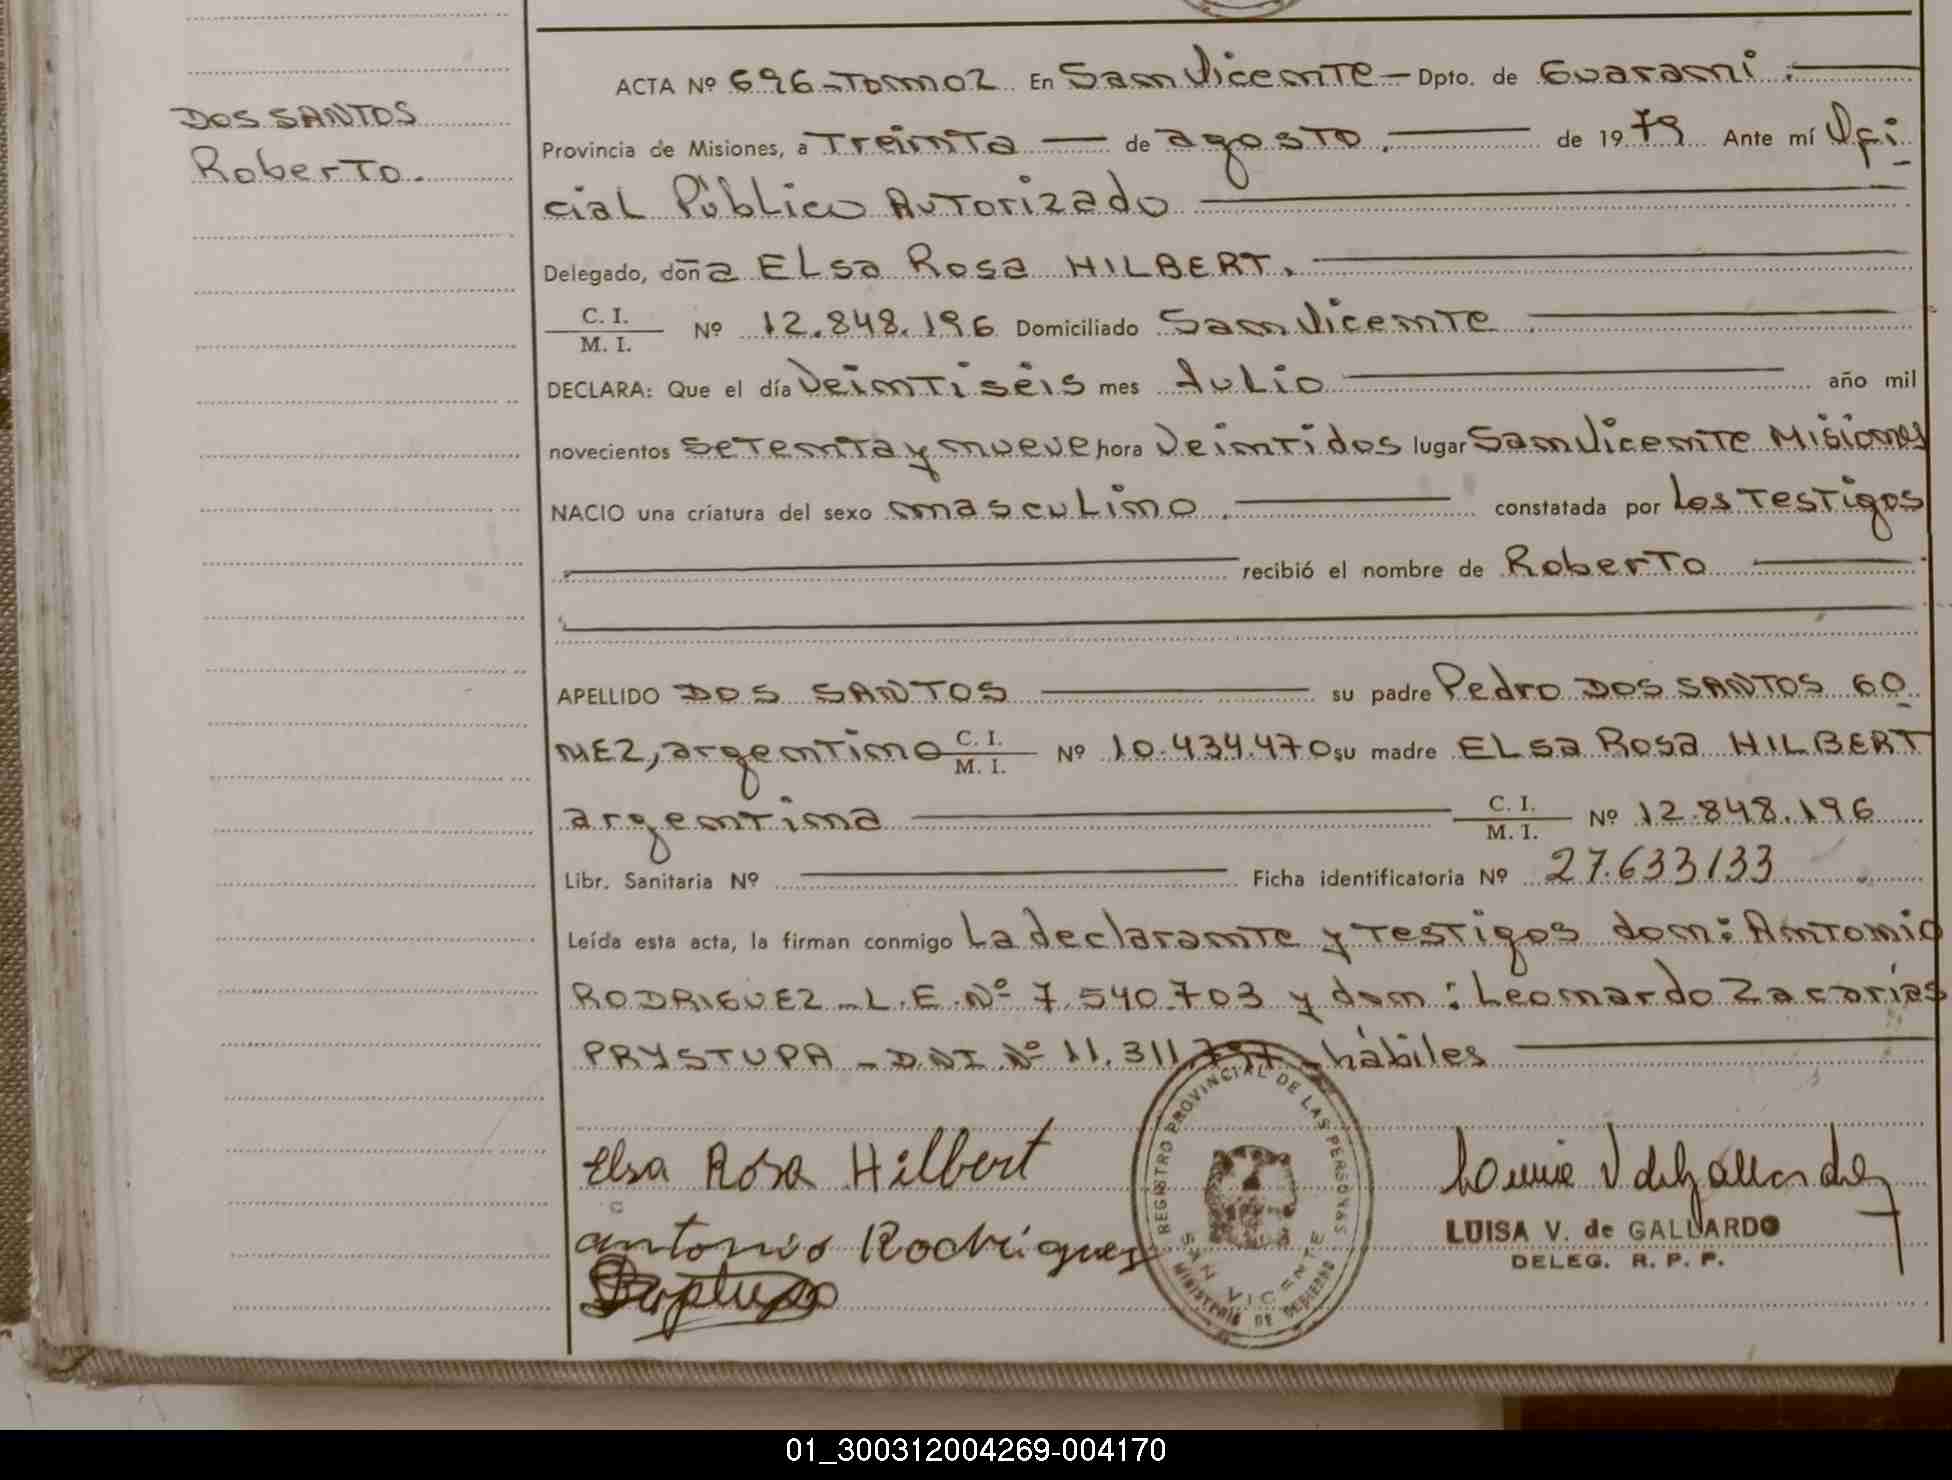 DOS SANTOS
Roberto.
ACTA Nº 696-Tomo 2 En San Vicente - Dpto. de Guaraní.
Provincia de Misiones, a Treinta de agosto. de 1979 Ante mí Ofi
cial Público Autorizado
Delegado, doña Elsa Rosa HILBERT.
C. I.
M. I. Nº 12.848.196 Domiciliado San Vicente
DECLARA: Que el día Veintiséis mes Julio año mil
novecientos setenta y nueve hora Veintidos lugar San Vicente Misiones
NACIO una criatura del sexo masculino. constatada por los Testigos
recibió el nombre de Roberto
APELLIDO DOS SANTOS su padre Pedro DOS SANTOS GO
MEZ, argentino C. I. M. I. Nº 10.434.470 su madre Elsa Rosa HILBERT
argentina C. I. M. I. Nº 12.848.196
Libr. Sanitaria Nº Ficha identificatoria Nº 27.633133
Leída esta acta, la firman conmigo La declarante y Testigos don: Antonio
RODRIGUEZ - L.E.Nº 7.540.703 y don: Leonardo Zacarías
PRYSTUPA - D.N.I.Nº 11.311. - hábiles
Elsa Rosa Hilbert
Antonio Rodriguez
REGISTRO PROVINCIAL DE LAS PERSONAS
SAN VICENTE
MINISTERIO DE GOBIERNO
LUISA V. de GALLARDO
DELEG. R. P. P.
01_300312004269-004170